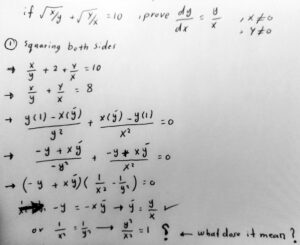 if √x/y + √y/x = 10 , prove dy/dx = y/x , x≠0 , y≠0
① Squaring both sides
→ x/y + 2 + y/x = 10
→ x/y + y/x = 8
→ y(1) - x(ý)/y² + x(ý) - y(1)/x² = 0
→ -y + xý/-y² + -y + xý/x² = 0
→ (-y + xý)(1/x² - 1/y²) = 0
→ -y = -xý → ý = y/x ✓
or 1/x² = 1/y² → y²/x² = 1 ? ← what dose it mean?